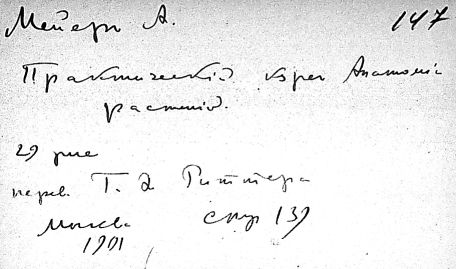 Мейеръ А. 147
Практическій курс Анатоміи
растеній.
29 рис
перев. Т. Э Риттера
Москва стр 139
1901